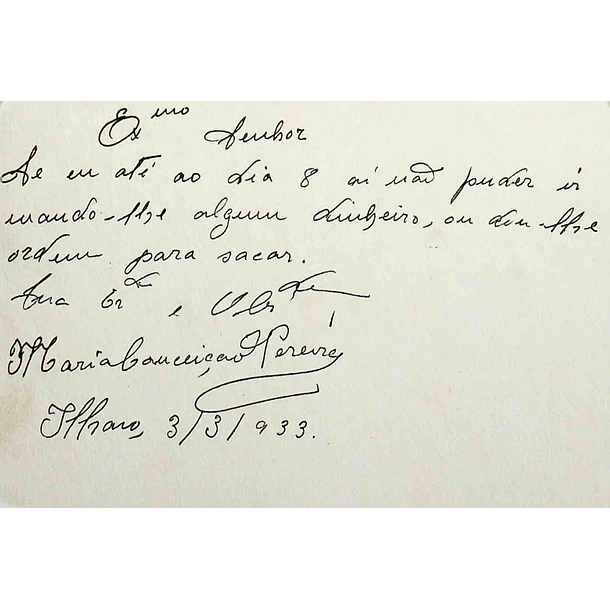 Exmo Senhor
Se eu até ao dia 8 aí não puder ir
mando-lhe algum dinheiro, ou dou-lhe
ordem para sacar.
Sua Crda e Obrda
Maria Conceição Pereira
Ilhavo, 3/3/933.